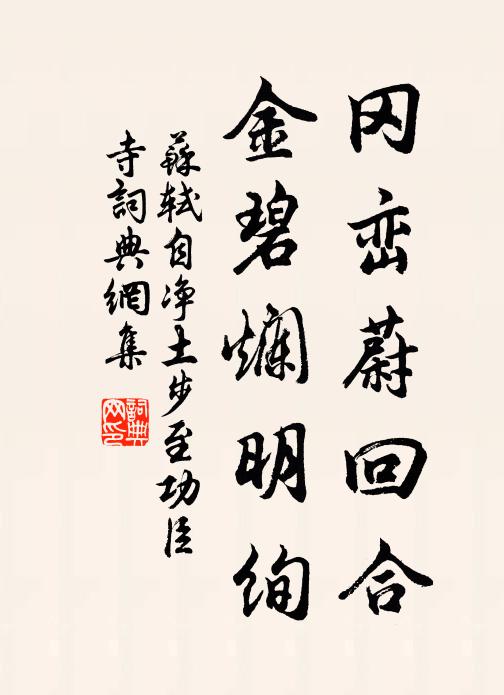 冈峦蔚回合
金碧烂明绚
蘇轼自净土步至功臣
寺詞典網集
詞典
网印